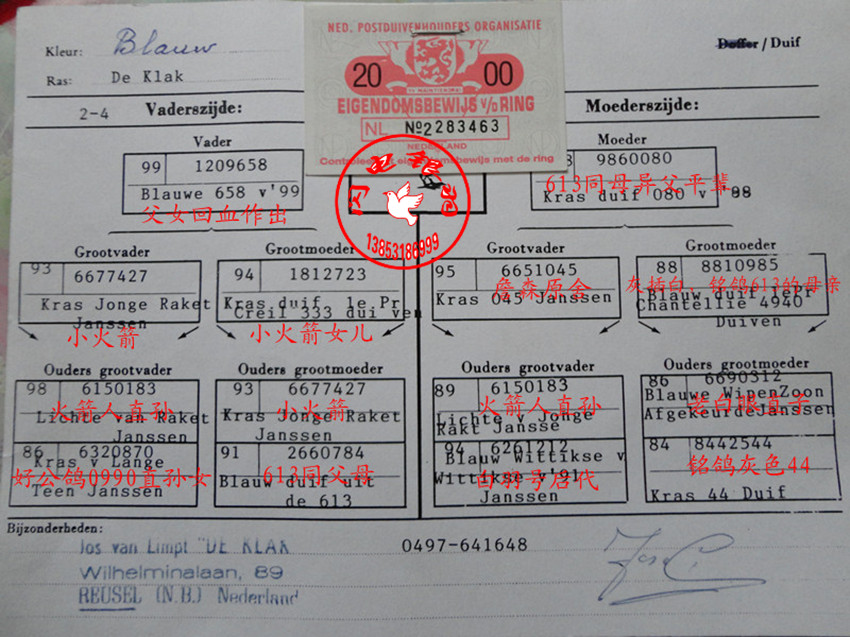 Kleur: Blauw
Ras: De Klak
NED. POSTDUIVENHOUDERS ORGANISATIE
20 00
EIGENDOMSBEWIJS V/D RING
NL No2283463
NEDERLAND
Controleer eigendomsbewijs met de ring
Doffer / Duif
2-4 Vaderszijde:
Moederszijde:
Vader
99 1209658
Blauwe 658 v'99
父女回血作出
Moeder
8 9860080
613同母异父平辈
Kras duif 080 v '98
13853186999
Grootvader
93 6677427
Kras Jonge Raket
Janssen
小火箭
Grootmoeder
94 1812723
Kras duif, 1e Pr
Creil 333 dui ven
小火箭女儿
Grootvader
95 6651045
詹森原舍
Kras 045 Janssen
Grootmoeder
88 8810985
灰插白,铭鸽613的母亲
Blauw duif 1epr
Chantellie 4940
Duiven
Ouders grootvader
98 6150183
火箭人直孙
Lichte van Raket
Janssen
86 6320870
Kras v Lange
好公鸽0990直孙女
Teen Janssen
Ouders grootmoeder
93 6677427
小火箭
Kras Jonge Raket
Janssen
91 2660784
613同父母
Blauw duif uit
de 613
Ouders grootvader
89 6150183
火箭人直孙
Lichte v Jonge
Rakt Jansse
94 6261212
Blauw Wittikse v
Wittikse v'91
白翱号后代
Janssen
Ouders grootmoeder
86 6690312
Blauwe WipenZoon
老白眼直子
AfgekeurdeJanssen
84 8442544
铭鸽灰色44
Kras 44 Duif
Bijzonderheden:
Jos van Limpt "DE KLAK
0497-641648
Wilhelminalaan, 89
REUSEL (N.B.) Nederland